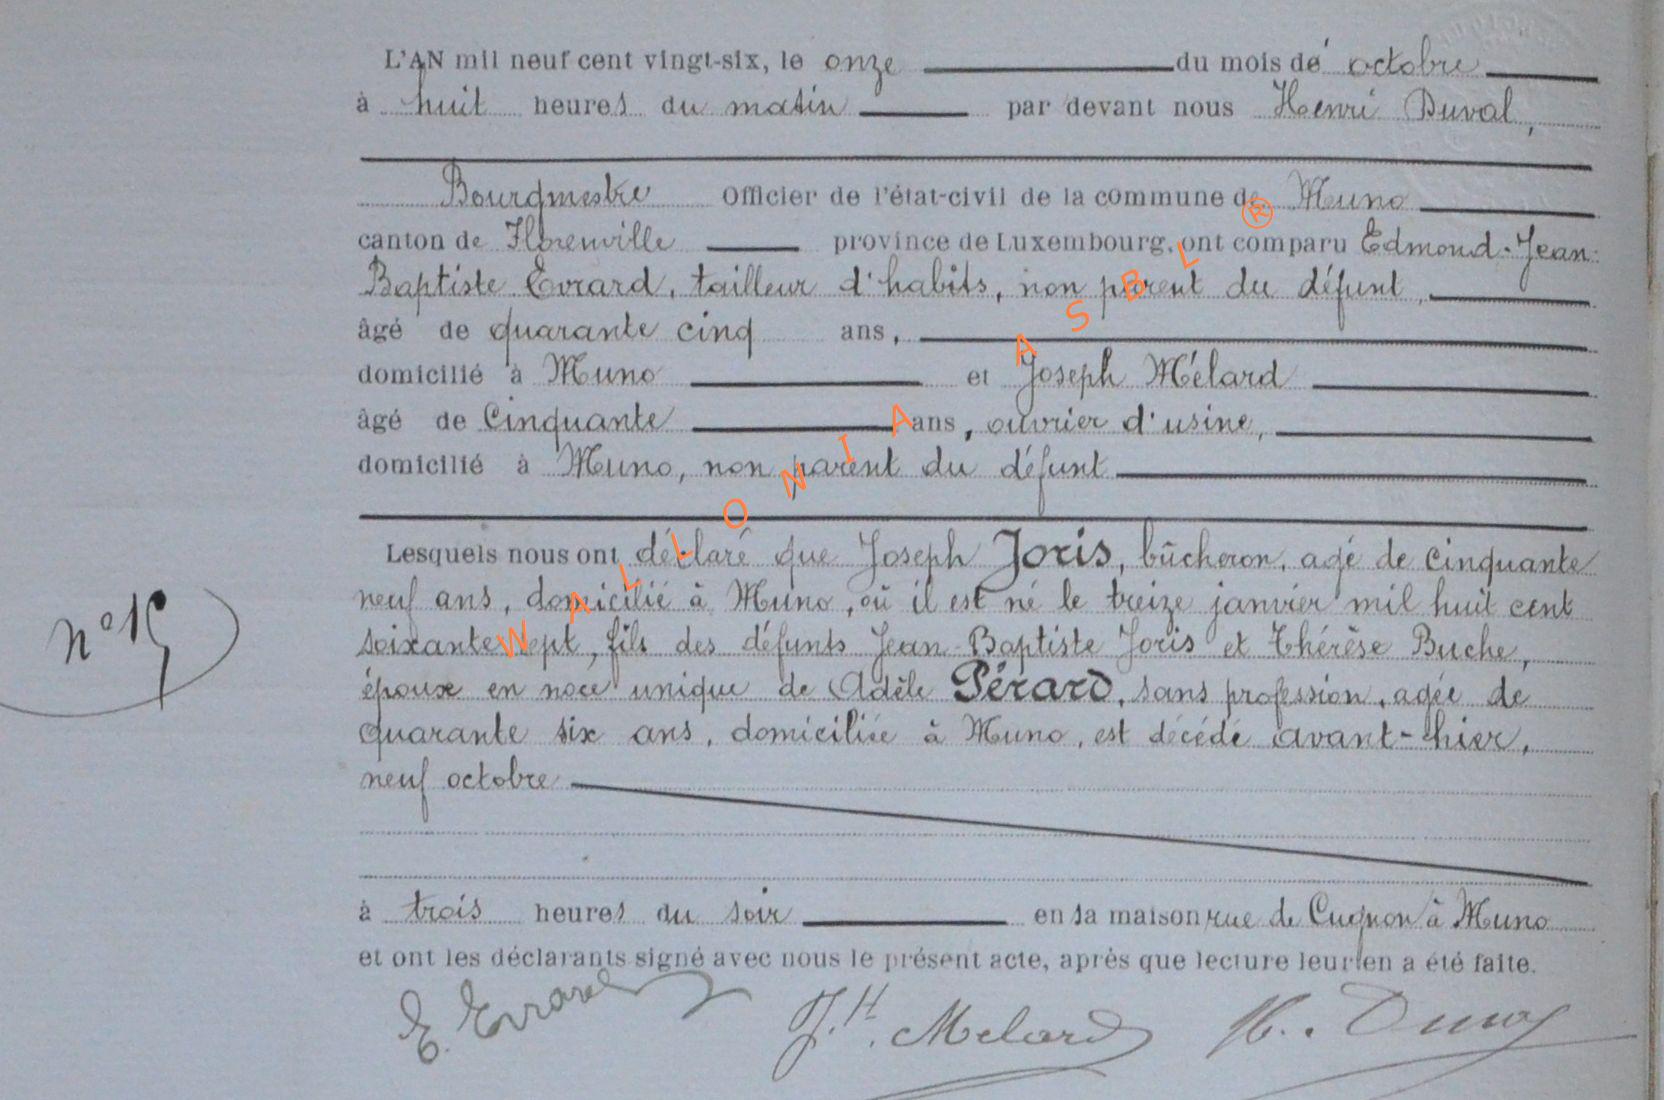 L'AN mil neuf cent vingt-six, le onze du mois de octobre
à huit heures du matin par devant nous Henri Duval,
Bourgmestre Officier de l'état-civil de la commune de Muno
canton de Florenville province de Luxembourg, ont comparu Edmond-Jean-
Baptiste Evrard, tailleur d'habits, non parent du défunt,
âgé de quarante cinq ans,
domicilié à Muno et Joseph Mélard
âgé de Cinquante ans, ouvrier d'usine,
domicilié à Muno, non parent du défunt
Lesquels nous ont déclaré que Joseph Joris, bûcheron, agé de cinquante
neuf ans, domicilié à Muno, où il est né le treize janvier mil huit cent
nº 15
soixante sept, fils des défunts Jean-Baptiste Joris et Thérèse Buche,
époux en noce unique de Adèle Pérard, sans profession, agée de
quarante six ans, domiciliée à Muno, est décédé avant-hier,
neuf octobre
à trois heures du soir en sa maison rue de Cugnon à Muno
et ont les déclarants signé avec nous le présent acte, après que lecture leur en a été faite.
E. Evrard J.H. Melard H. Duval
WALLONIA ASBL ®